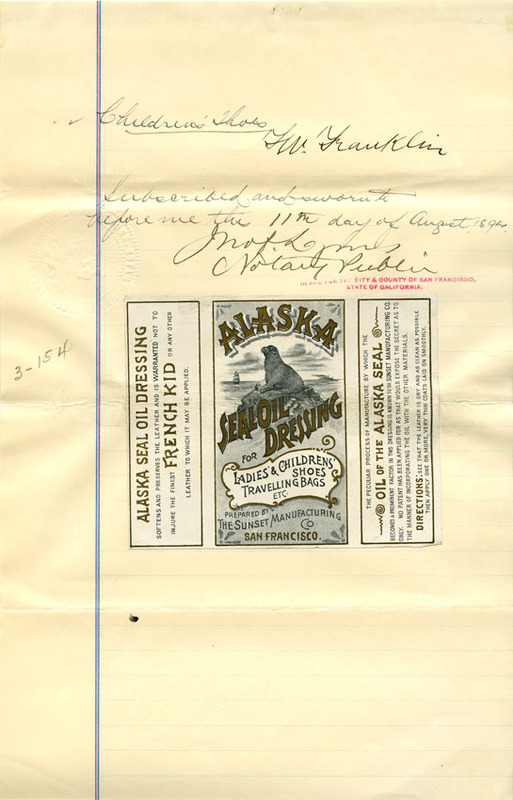 Children's Shoes
F.W. Franklin
Subscribed and sworn to
before me this 11th day of August 1892
Notary Public
CITY & COUNTY OF SAN FRANCISCO,
STATE OF CALIFORNIA.
3-154
ALASKA SEAL OIL DRESSING
SOFTENS AND PRESERVES THE LEATHER AND IS WARRANTED NOT TO
INJURE THE FINEST FRENCH KID OR ANY OTHER
LEATHER TO WHICH IT MAY BE APPLIED.
ALASKA
SEAL OIL
DRESSING
FOR
LADIES' & CHILDREN'S
SHOES
TRAVELLING BAGS
ETC.
PREPARED BY
THE SUNSET MANUFACTURING
CO
SAN FRANCISCO.
THE PECULIAR PROCESS OF MANUFACTURE BY WHICH THE
OIL OF THE ALASKA SEAL
BECOMES A PROMINENT FACTOR IN THIS DRESSING IS KNOWN TO THE SUNSET MANUFACTURING CO.
ONLY. NO PATENT HAS BEEN APPLIED FOR AS THAT WOULD EXPOSE THE SECRET AS TO
THE MANNER OF INCORPORATING THE OIL WITH THE OTHER MATERIALS.
DIRECTIONS: SEE THAT THE LEATHER IS DRY AND AS CLEAN AS POSSIBLE
THEN APPLY ONE OR MORE VERY THIN COATS LAID ON SMOOTHLY.